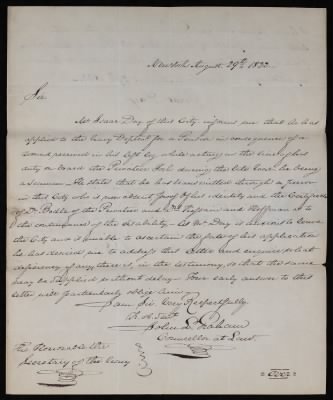 New York August 29th 1832
Sir
Mr Isaac Day of this City informs me that he has
applied to the Navy Depart for a Pension in consequence of a
wound received in his left leg while acting in the line of his
duty on board the Privateer during the late War, he being
a seaman. He states that he has transmitted through a person
in this City who is now absent proof of his identity and the
of Dr of the Privateer and Drs and Hoffman of
the continuance of the disability. As Mr Day is anxious to leave
the City and is unable to ascertain the fate of his application
he has desired me to address this letter and enquire what
deficiency if any there is, in the testimony, so that the same
may be supplied without delay. Your early answer to this
letter will particularly oblige him,
I am Sir Very Respectfully
Yr. Ob. Servt.
John L Graham
Counsellor at Law.
The Honorable the
Secretary of the Navy
over